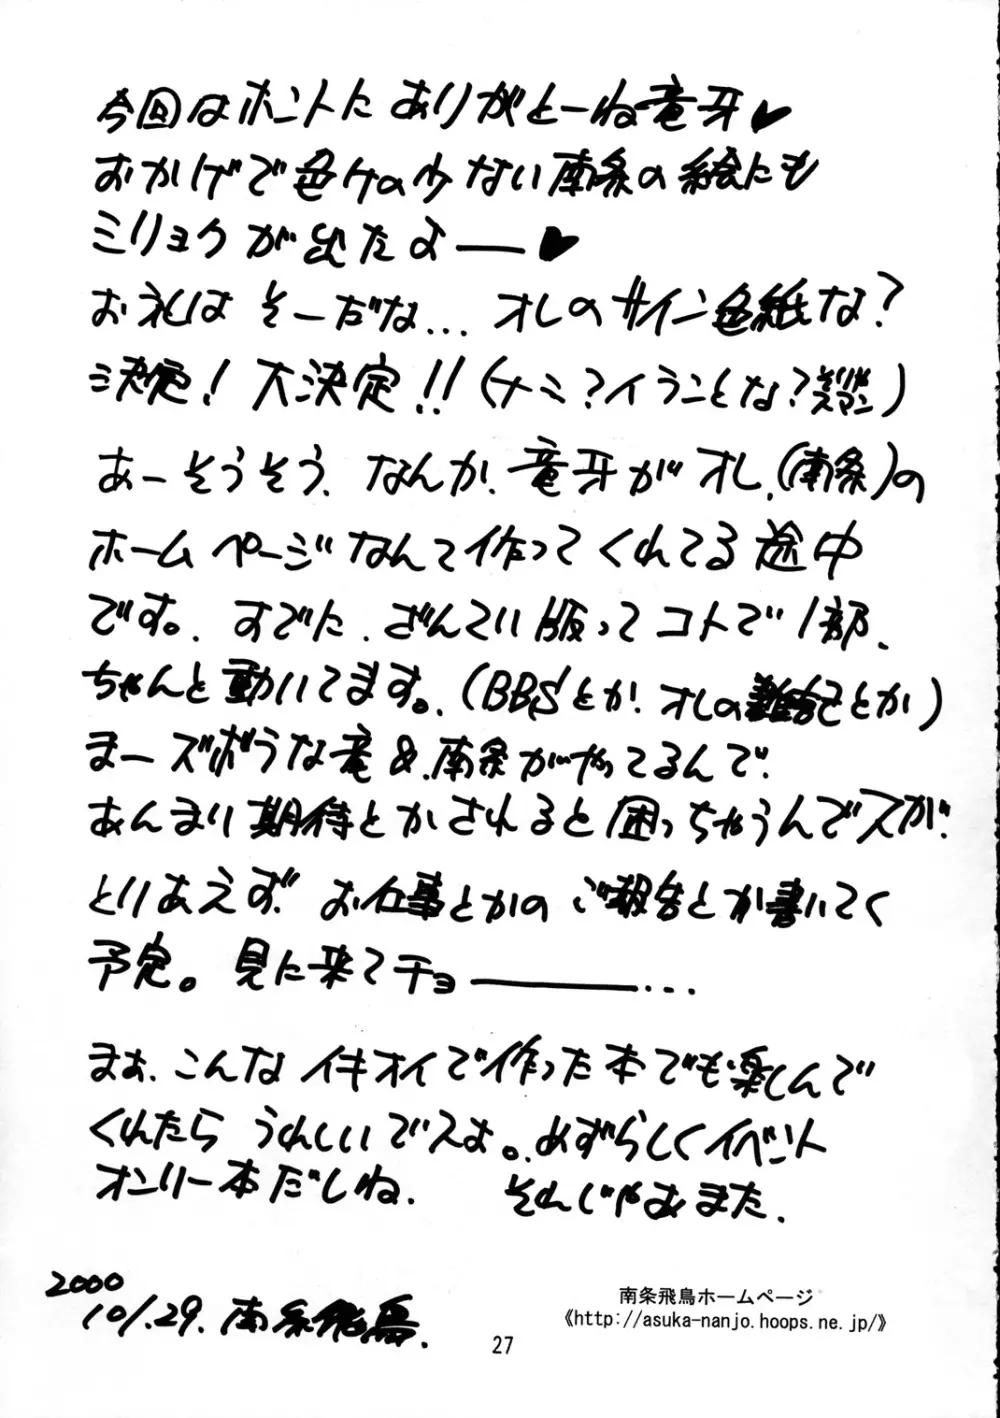 今回はホントに ありがとーね竜牙♥
おかげで色ケの少ない南条の絵にも
ミリョクが出たよ――♥
お礼は そーだな… オレのサイン色紙な?
決定! 大決定!! (ナミ?イラことな?
あーそうそう、なんか、竜牙がオレ、(南条)の
ホームページなんて作ってくれてる途中
です。すでに、ざんてい版ってコトで1部、
ちゃんと動いてます。(BBSとか、オレの雑記とか)
まーズボラな竜&南条がやってるんで、
あんまり期待とかされると困っちゃうんでスが、
とりあえず、お仕事とかの ご報告とか書いてく
予定。見に来てチョ――――…
まぁ、こんなイキオイで作った本でも楽しんで
くれたら うれしいでスよ。めずらしくイベント
オンリー本だしね. それじゃあまた.
2000
10/.29. 南条飛鳥.
南条飛鳥ホームページ
《http://asuka-nanjo.hoops.ne.jp/》
27